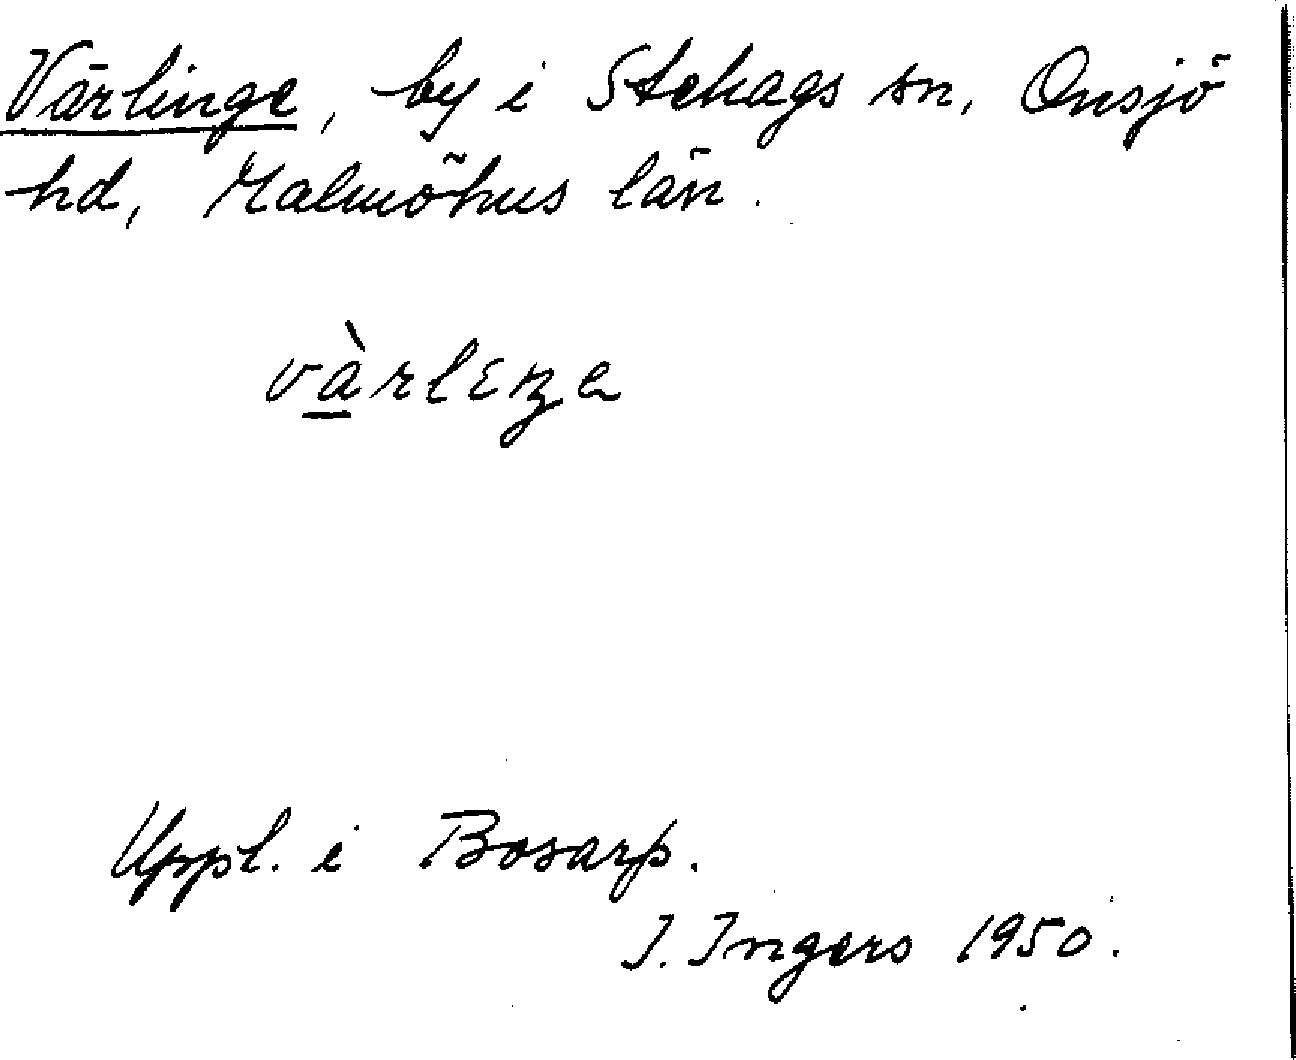 Värlinge, by i Stehags sn, Onsjö
hd, Malmöhus län.
Uppl. i Bosarp.
I. Ingers 1950.